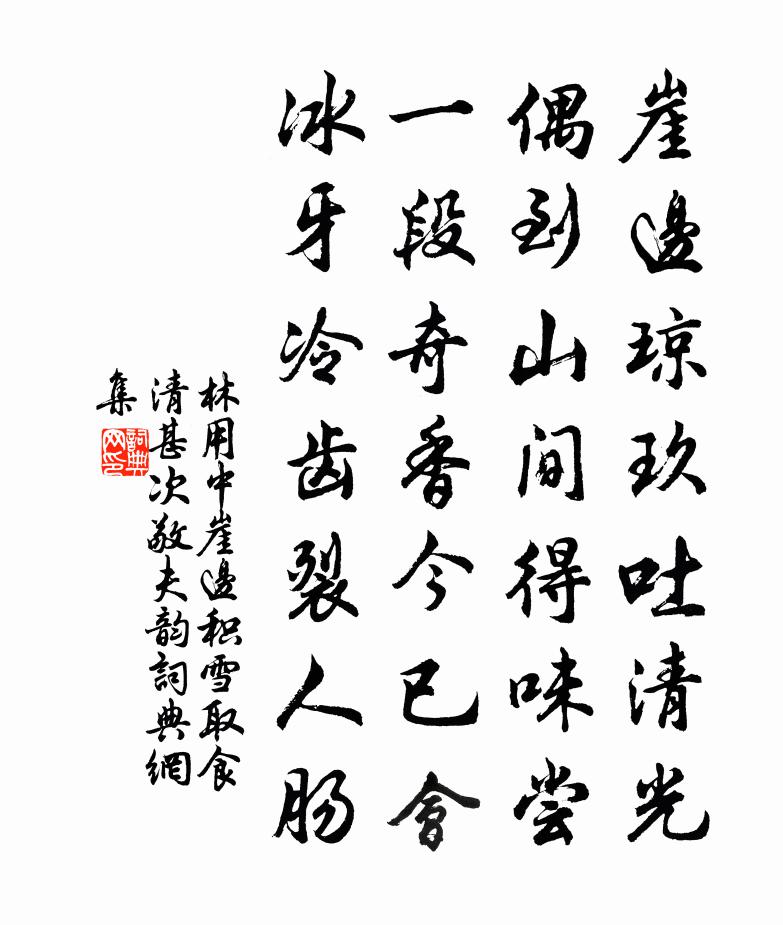 崖邊琼玖吐清光
偶到山间得味尝
一段奇香今已會
冰牙冷齿裂人肠
林用中崖邊积雪取食
清甚次敬夫韵詞典網
集
詞典
网印